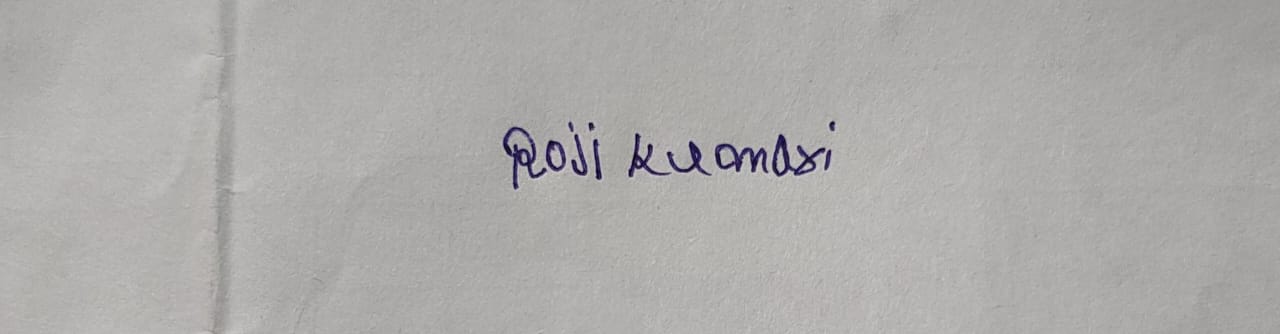 Roji Kumari